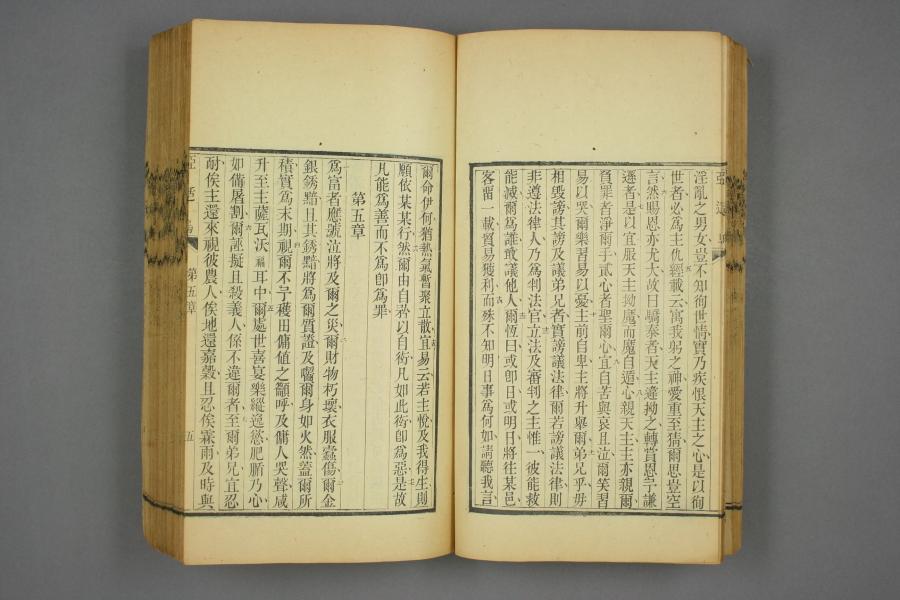 淫亂之男女豈不知徇世情實乃疾恨天主之心是以徇
世者必為主仇經載云寓我躬之神愛重至猜爾思豈空
言然賜恩亦尤大故曰驕泰者天主違拗之轉賞恩予謙
遜者是以宜服天主拗魔而魔自遁心親天主主亦親爾
負罪者淨爾手貳心者聖爾心宜自苦與哀且泣爾笑習
易以哭爾樂習易以憂主前自卑主將升舉爾弟兄乎毋
相毀謗其謗及議弟兄者實謗議法律爾若謗議法律則
非遵法律人乃為判法官立法及審判之主惟一彼能救
能滅爾為誰敢議他人爾恆曰或即日或明日將往某邑
客畱一載貿易獲利而殊不知明日事為何如請聽我言
爾命伊何猶熱氣暫聚立散宜易云若主悅及我得生則
願依某某行然爾由自矜以自衒凡如此衒即為惡是故
凡能為善而不為即為罪
第五章
為富者應號泣將及爾之災爾財物朽壞衣服蠹傷爾金
銀銹黯且其銹黯將為爾質證及囓爾身如火然蓋爾所
積實為末期視爾不予穫田傭值之籲呼及傭人哭聲咸
升至主薩瓦沃耳中爾處世喜宴樂縱逸慾肥腯乃心
如備屠割爾誣擬且殺義人係不違爾者至爾弟兄宜忍
耐俟主還來視彼農人俟地還嘉穀且忍俟霖雨及時與
第五章
五